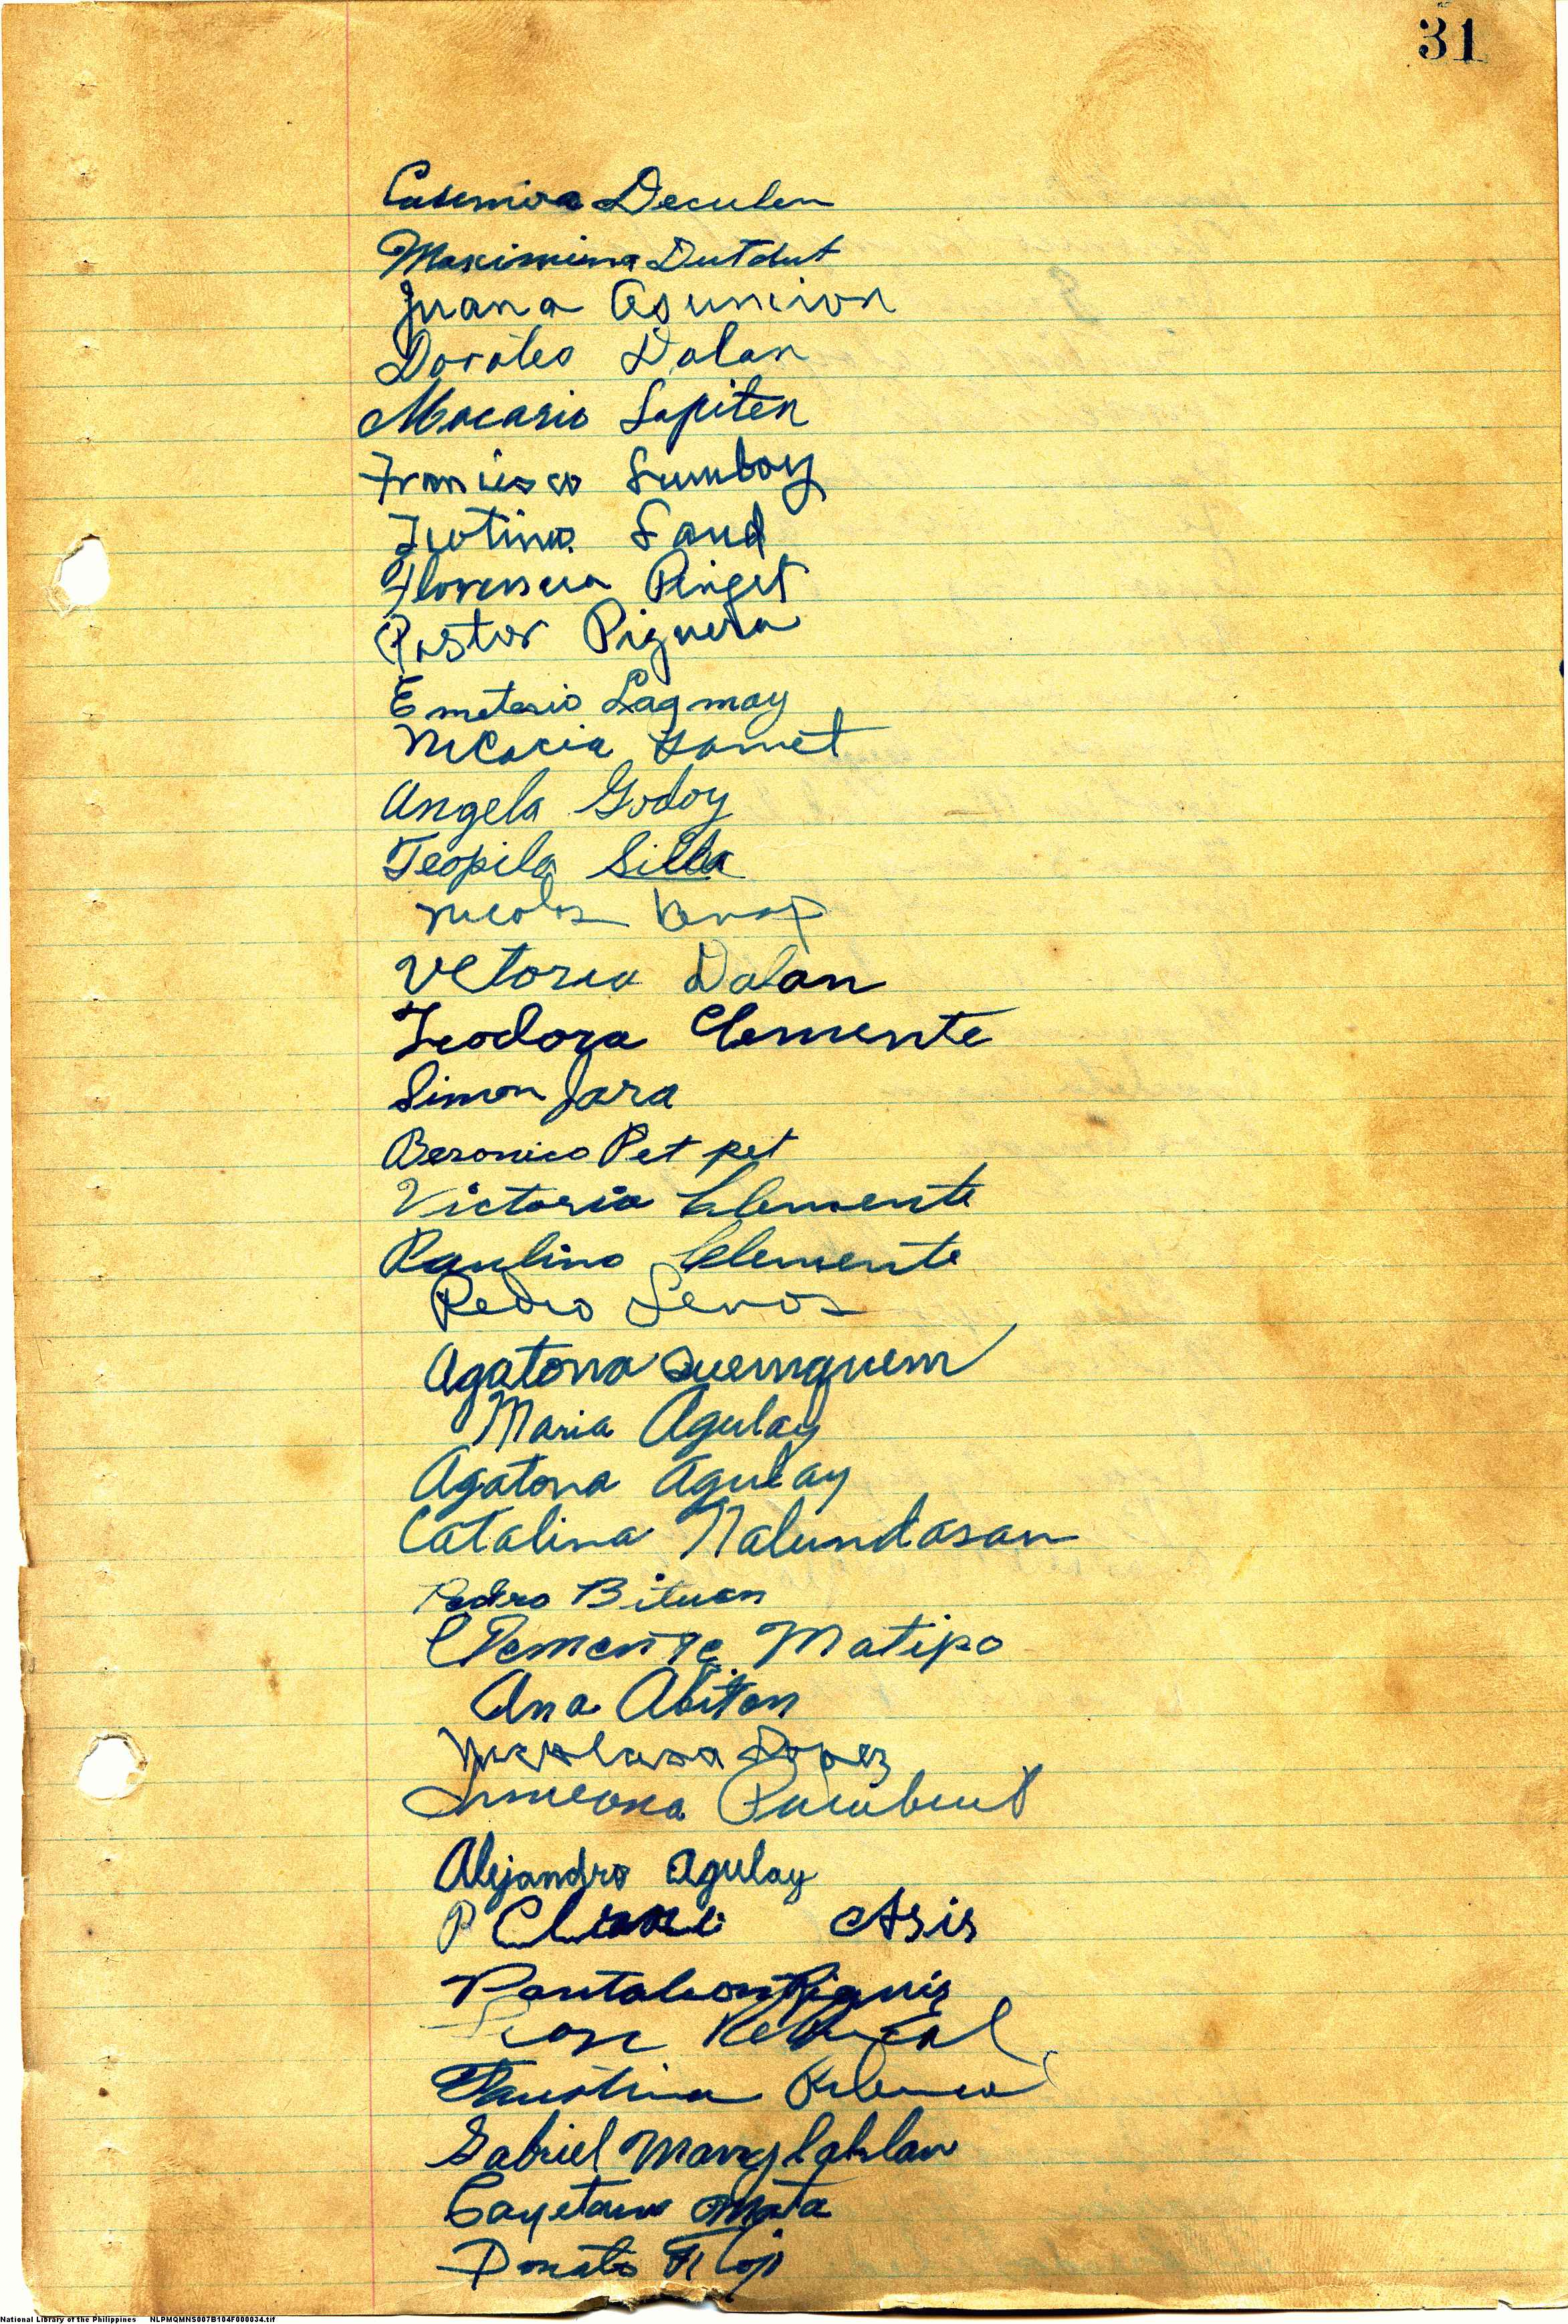 31
Casimira Deculen
Maximina Dutdut
Juana Asuncion
Doroteo Dalan
Macario Lapiten
Francisco Sumboy
Florencia Pinget
Pastor Piguera
Emeterio Lagmay
Gamet
Angela Godoy
Teopila Silla
Nicolas
Vetoria Dalan
Teodora Clemente
Simon Jara
Beronico Petpet
Victoria Clemente
Paulino Clemente
Pedro
Agatona
Maria Agulay
Agatona Agulay
Catalina Nalundasan
Pedro Bituen
Clemente Matipo
Ana Abitan
Lopez
Simeona
Alejandro Agulay
P Asis
Pantaleon
Faustina
Gabriel Manglahlan
Cayetano Mata
Donato
National Library of the Philippines NLPMQMNS007B104F000034.tif